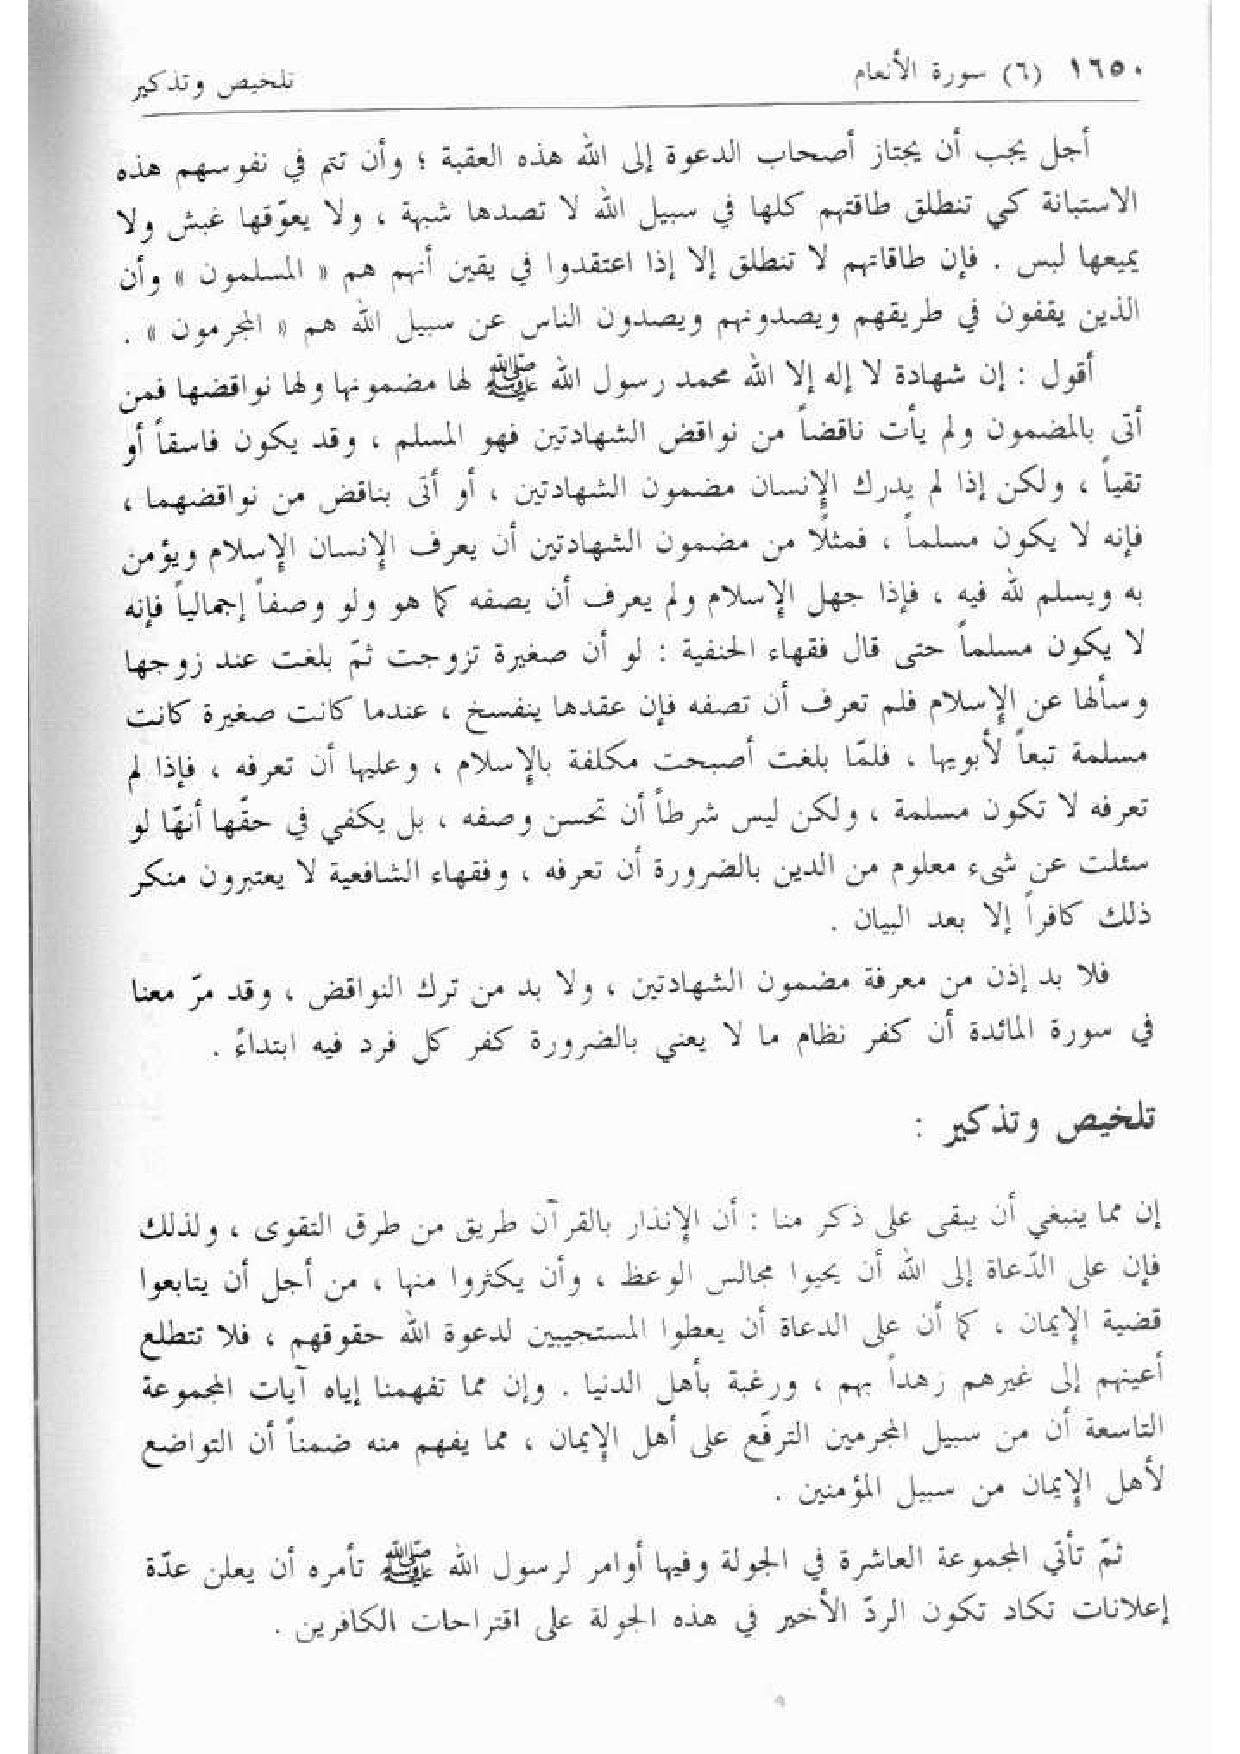 ١٦٥٠ (٦) سورة الأنعام تلخيص وتذكير
أجل يجب أن يجتاز أصحاب الدعوة إلى الله هذه العقبة ؛ وأن تتم في نفوسهم هذه
الاستبانة كي تنطلق طاقتهم كلها في سبيل الله لا تصدها شبهة ، ولا يعوّقها غبش ولا
يميعها لبس . فإن طاقاتهم لا تنطلق إلا إذا اعتقدوا في يقين أنهم هم « المسلمون » وأن
الذين يقفون في طريقهم ويصدونهم ويصدون الناس عن سبيل الله هم « المجرمون » .
أقول : إن شهادة لا إله إلا الله محمد رسول الله ﷺ لها مضمونها ولها نواقضها فمن
أتى بالمضمون ولم يأت ناقضاً من نواقض الشهادتين فهو المسلم ، وقد يكون فاسقاً أو
تقياً ، ولكن إذا لم يدرك الإنسان مضمون الشهادتين ، أو أتى بناقض من نواقضهما ،
فإنه لا يكون مسلماً ، فمثلًا من مضمون الشهادتين أن يعرف الإنسان الإسلام ويؤمن
به ويسلم لله فيه ، فإذا جهل الإسلام ولم يعرف أن يصفه كما هو ولو وصفاً إجمالياً فإنه
لا يكون مسلماً حتى قال فقهاء الحنفية : لو أن صغيرة تزوجت ثمّ بلغت عند زوجها
وسألها عن الإسلام فلم تعرف أن تصفه فإن عقدها ينفسخ ، عندما كانت صغيرة كانت
مسلمة تبعاً لأبويها ، فلمّا بلغت أصبحت مكلفة بالإسلام ، وعليها أن تعرفه ، فإذا لم
تعرفه لا تكون مسلمة ، ولكن ليس شرطاً أن تحسن وصفه ، بل يكفي في حقّها أنهّا لو
سئلت عن شيء معلوم من الدين بالضرورة أن تعرفه ، وفقهاء الشافعية لا يعتبرون منكر
ذلك كافراً إلا بعد البيان .
فلا بد إذن من معرفة مضمون الشهادتين ، ولا بد من ترك النواقض ، وقد مرّ معنا
في سورة المائدة أن كفر نظام ما لا يعني بالضرورة كفر كل فرد فيه ابتداءً .
تلخيص وتذكير :
إن مما ينبغي أن يبقى على ذكر منا : أن الإنذار بالقرآن طريق من طرق التقوى ، ولذلك
فإن على الدّعاة إلى الله أن يحيوا مجالس الوعظ ، وأن يكثروا منها ، من أجل أن يتابعوا
قضية الإيمان ، كما أن على الدعاة أن يعطوا المستجيبين لدعوة الله حقوقهم ، فلا تتطلع
أعينهم إلى غيرهم زهداً بهم ، ورغبة بأهل الدنيا . وإن مما تفهمنا إياه آيات المجموعة
التاسعة أن من سبيل المجرمين الترفّع على أهل الإيمان ، مما يفهم منه ضمناً أن التواضع
لأهل الإيمان من سبيل المؤمنين .
ثمّ تأتي المجموعة العاشرة في الجولة وفيها أوامر لرسول الله ﷺ تأمره أن يعلن عدّة
إعلانات تكاد تكون الردّ الأخير في هذه الجولة على اقتراحات الكافرين .